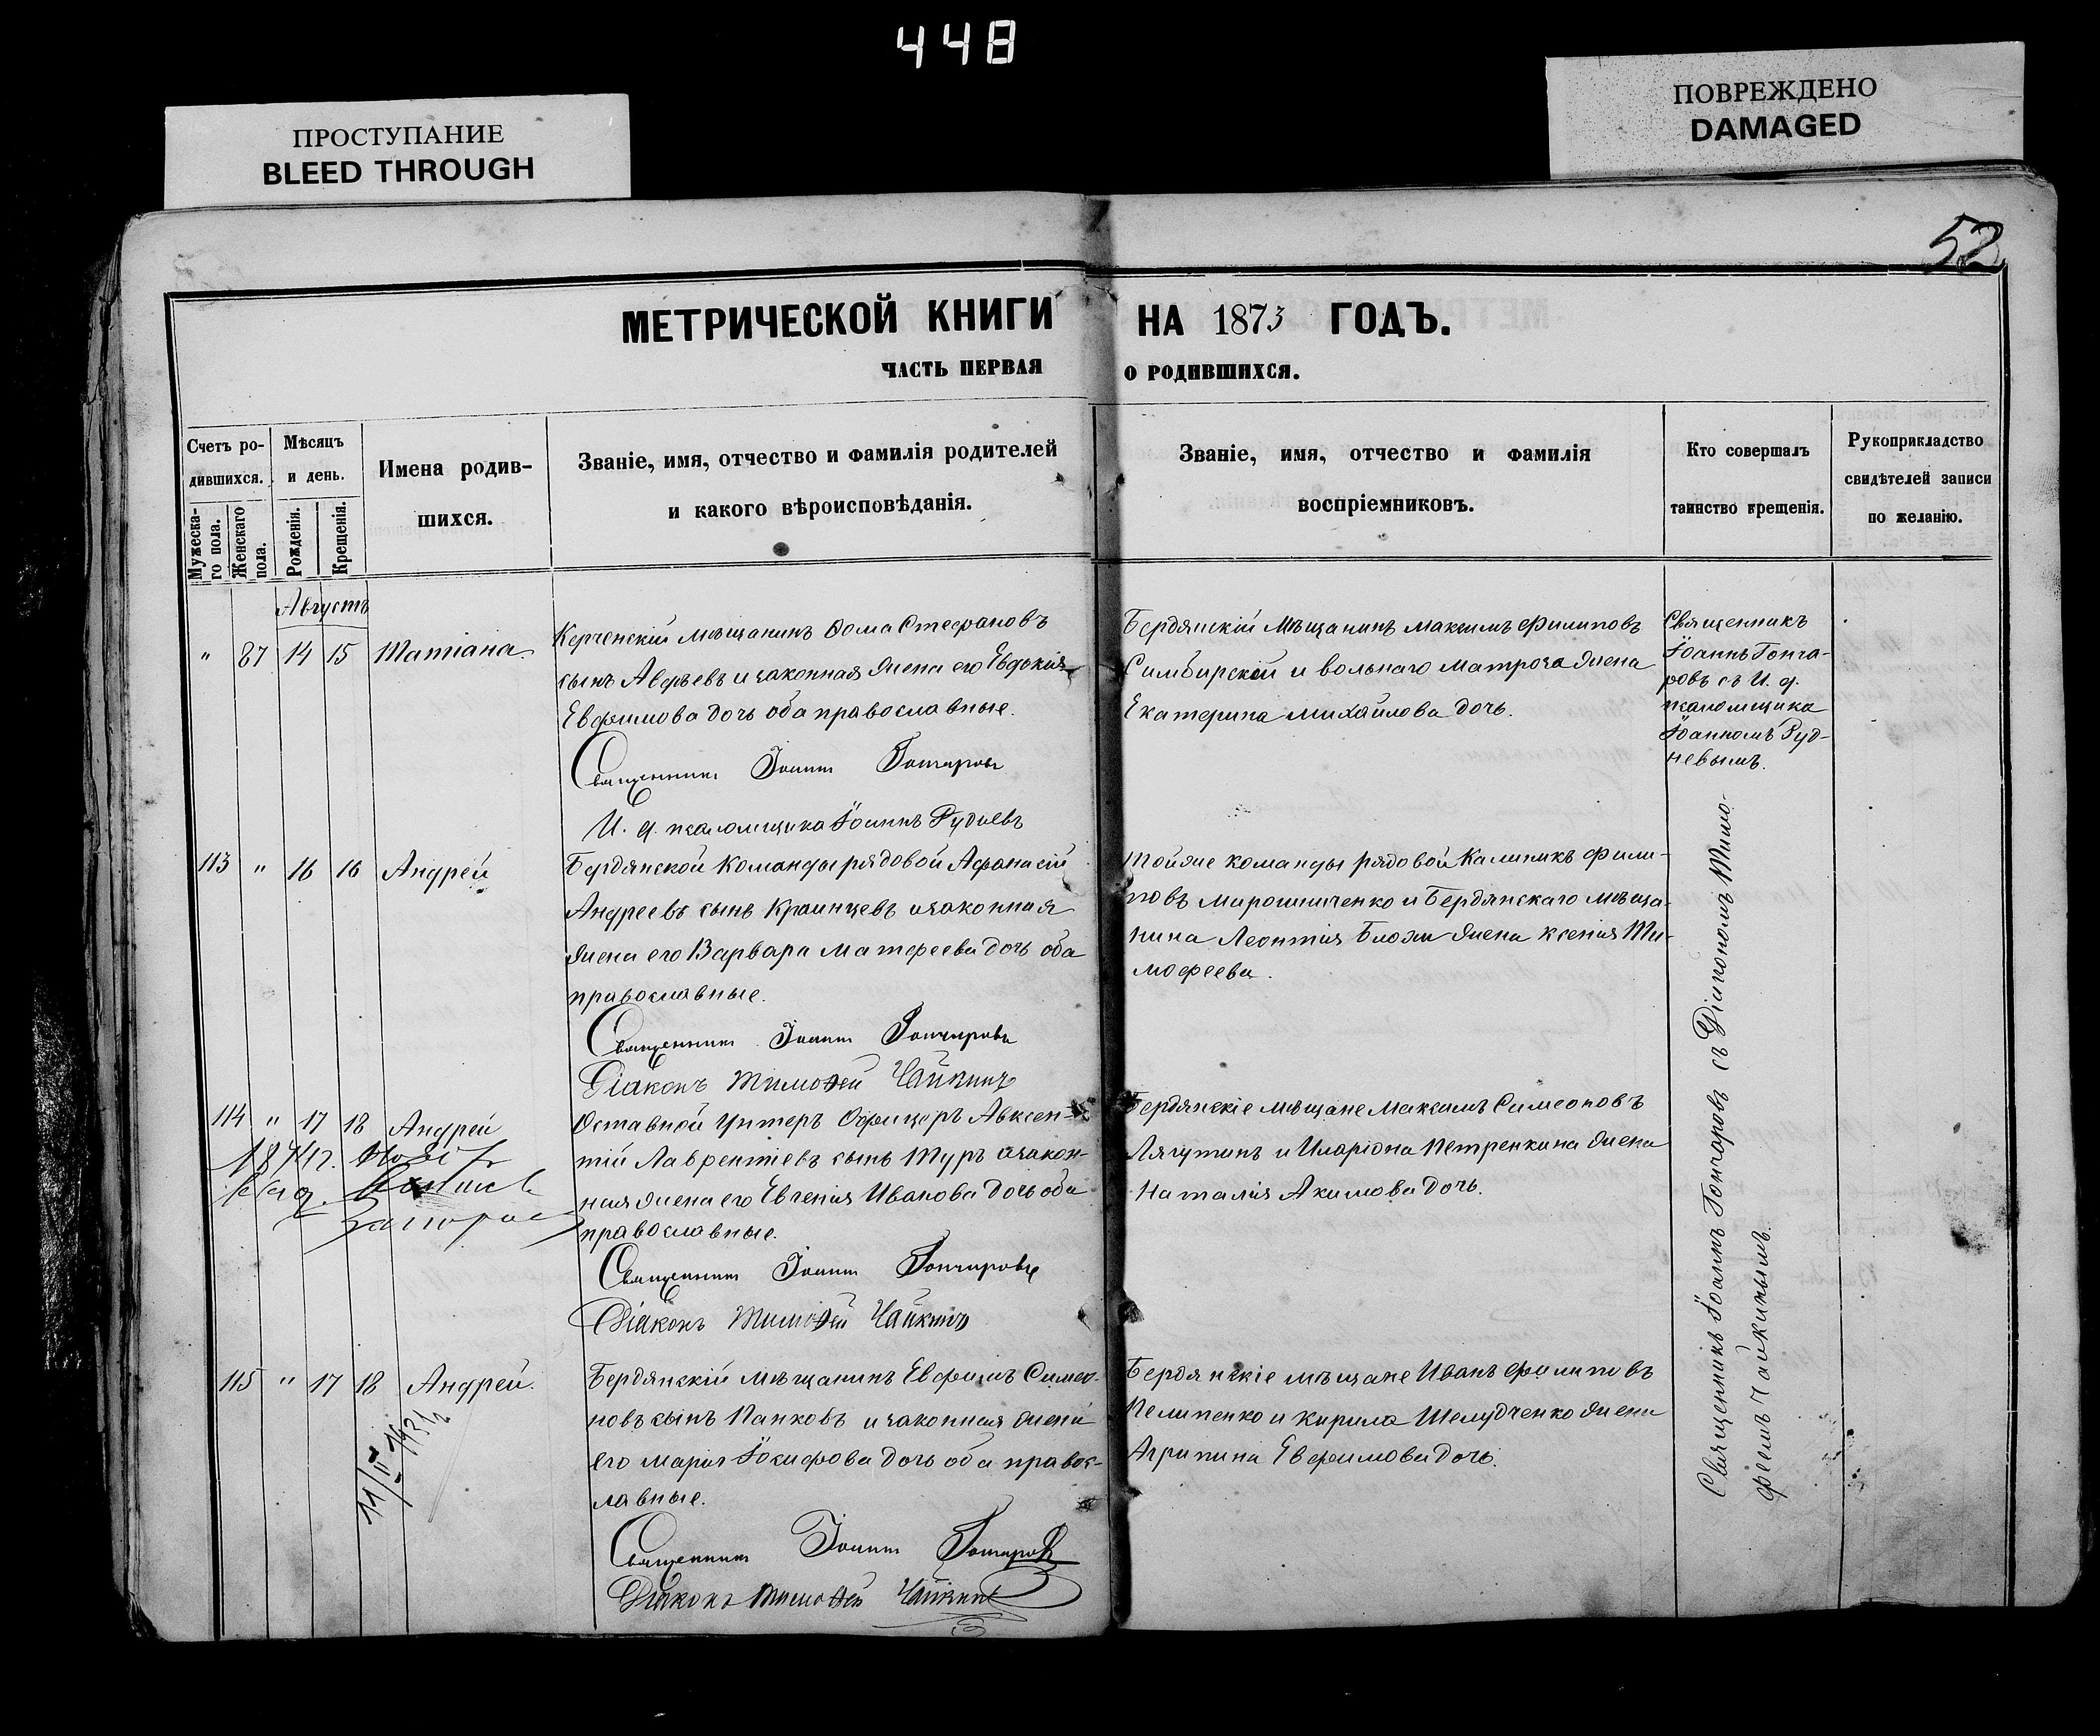 448
ПРОСТУПАНИЕ
BLEED THROUGH
ПОВРЕЖДЕНО
DAMAGED
52
МЕТРИЧЕСКОЙ КНИГИ НА 1873 ГОДЪ.
ЧАСТЬ ПЕРВАЯ О РОДИВШИХСЯ.
Счетъ ро-
дившихся.
Мужеска-
го пола.
Женскаго
пола.
Мѣсяцъ
и день.
Рожденія.
Крещенія.
Имена родив-
шихся.
Званіе, имя, отчество и фамилія родителей
и какого вѣроисповѣданія.
Званіе, имя, отчество и фамилія
воспріемниковъ.
Кто совершалъ
таинство крещенія.
Рукоприкладство
свидѣтелей записи
по желанію.
Августъ
" 87 14 15 Татіана.
Керченскій мѣщанинъ Фома Стефановъ
сынъ Авдѣевъ и законная жена его Евдокія
Евфимова дочь оба православные.
Священникъ Іоаннъ Гончаровъ
И. д. псаломщика Іоаннъ Рудневъ
Бердянскій мѣщанинъ Максимъ Филиповъ
Симбирской и вольнаго матроза жена
Екатерина Михайлова дочь.
Священникъ
Іоаннъ Гонча-
ровъ съ И. д.
псаломщика
Іоанномъ Руд-
невымъ.
113 " 16 16 Андрей
Бердянской Команды рядовой Афанасій
Андреевъ сынъ Краинцевъ и законная
жена его Варвара Матфеева дочь оба
православные.
Священникъ Іоаннъ Гончаровъ
Діаконъ Тимофей Чайкинъ
Тойже команды рядовой Калиникъ Фили-
повъ Мирошниченко и Бердянскаго мѣща-
нина Леонтія Блажи жена Ксенія Ти-
мофеева.
114 " 17 18 Андрей
Отставной Унтеръ Офицеръ Авксен-
тій Лаврентіевъ сынъ Туръ и закон-
ная жена его Евгенія Иванова дочь оба
православные.
Священникъ Іоаннъ Гончаровъ
Діаконъ Тимофей Чайкинъ
Бердянскіе мѣщане Максимъ Симеоновъ
Лягутинъ и Иларіона Петренкина жена
Наталія Акимова дочь.
115 " 17 18 Андрей.
Бердянскій мѣщанинъ Евфимъ Симео-
новъ сынъ Панковъ и законная жена
его Марія Іосифова дочь оба правос-
лавные.
Священникъ Іоаннъ Гончаровъ
Діаконъ Тимофей Чайкинъ
Бердянскіе мѣщане Иванъ Филиповъ
Пелипенко и Кирила Шелудченко жена
Агрипина Евфимова дочь.
Священникъ Іоаннъ Гончаровъ съ Діакономъ Тимо-
феемъ Чайкинымъ.